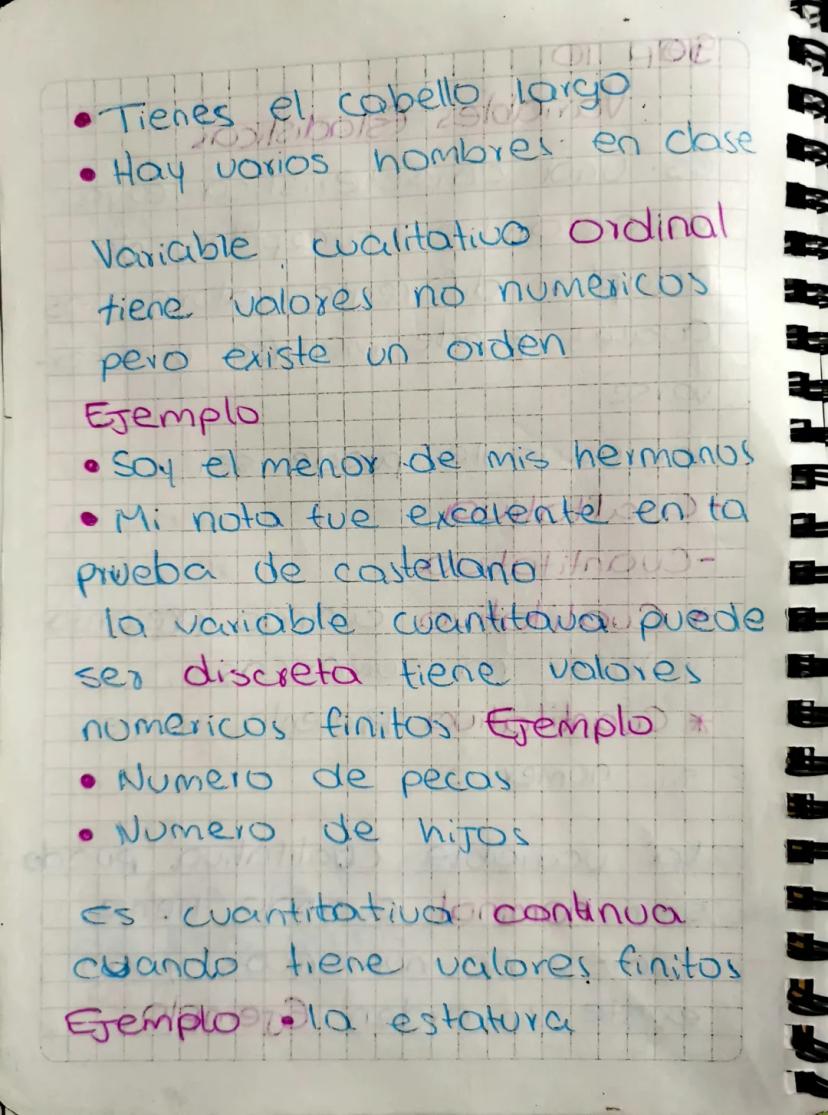 • Tienes el cabello largo
• Hay varios hombres en clase
Variable cualitativo Ordinal
tiene valores no numericos
pero existe un orden
Ejemplo
• Soy el menor de mis hermanos
• Mi nota fue excelente en ta
prueba de castellano
la variable cuantitava puede
ser discreta tiene valores
numericos finitos Ejemplo
• Numero de pecas
• Numero de hijos
Es cuantitativa continua
cuando tiene valores finitos
Ejemplo • la estatura